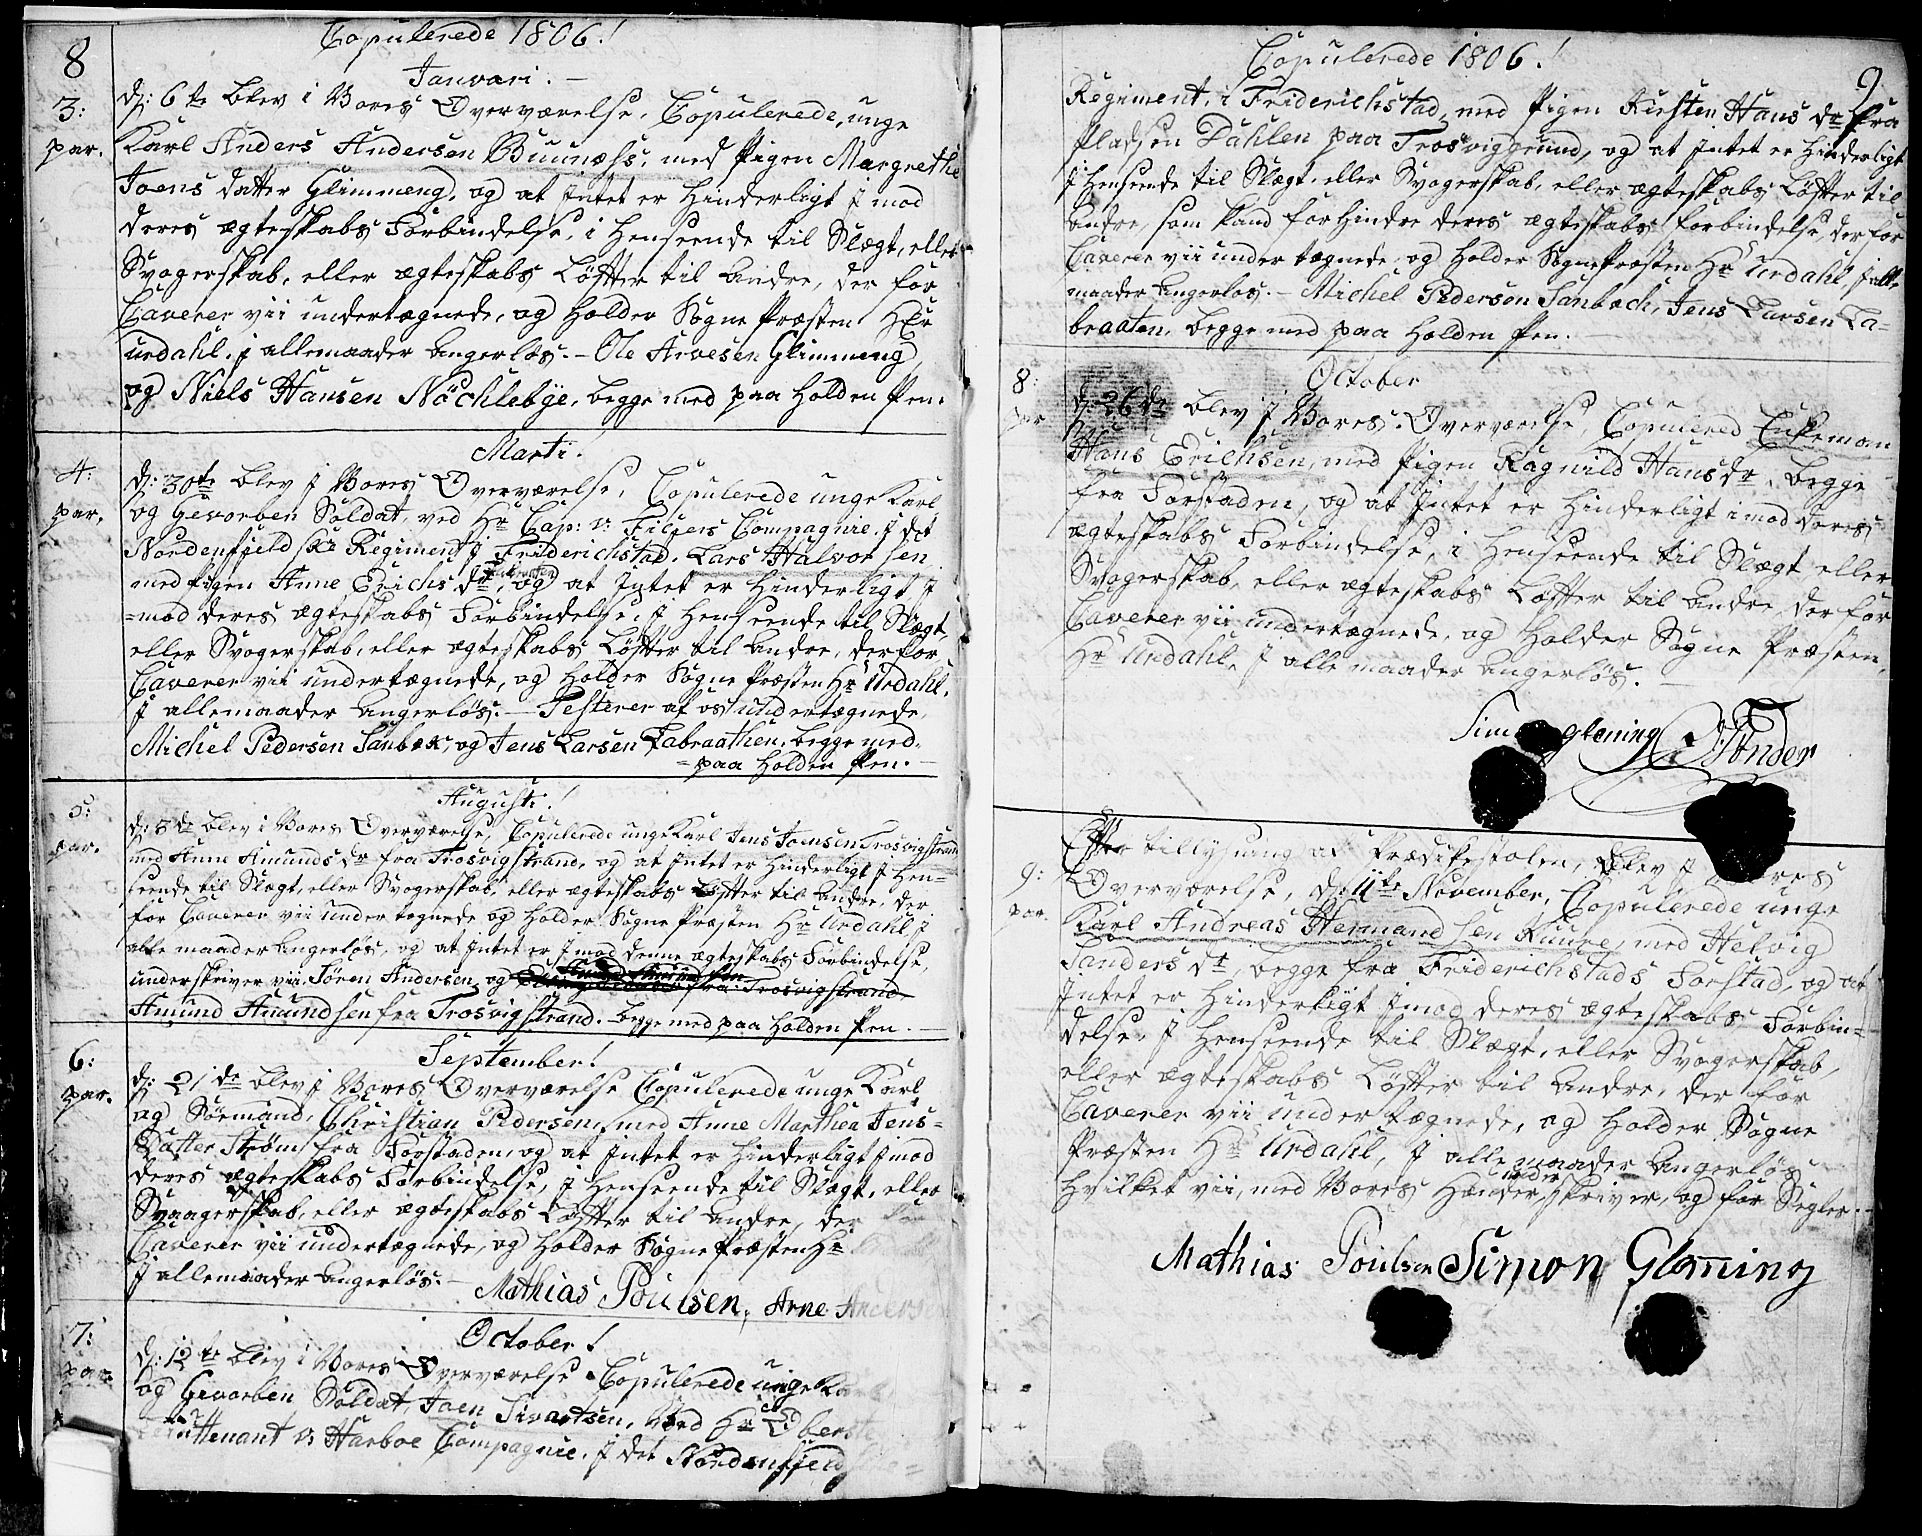 8
Copulerede 1806!
Januari. –
3:
par.
d: 6te blev i Vores Overværelse, Copulerede, unge
Karl Anders Andersen Buunæss, med Pigen Margrethe
Joens datter Glimmeng, og at Intet er Hinderligt J mod
deres ægteskabs Forbindelse, i Henseende til Slægt, eller
Svogerskab, eller ægteskabs Løfter til andre, der for
Caverer vii undertegnede, og Holder Sogne Præsten Her
Urdahl, J allemaader angerløs. – Ole Arvesen Glimmeng
og Niels Hansen Nöchlebye, begge med paa Holden Pen.
Marti!
4:
par.
d: 30te blev J Vores Overværelse, Copulerede unge Karl
og Gevorben Soldat, ved Hr Cap: v: Filsers Compagnie J det
Nordenfjeldske Regiment J Friderichstad, Lars Halvorsen
med Pigen Anne Erichs dr, og at Intet er Hinderligt J
=mod deres ægteskabs Forbindelse, J Henseende til Slægt,
eller Svogerskab, eller ægteskabs Løfter til andre, derfor
Caverer vii undertegnede, og Holder Sogne Præsten Hr Urdahl,
J allemaader angerløs. – Testerer af os undertægnede,
Michel Pedersen Sanbæk, og Jens Larsen Labraathen, begge med-
=paa Holden Pen. –
Augusti!
5:
par.
d: 3de blev i Vores Overværelse, Copulerede unge Karl Jens Joensen Trosvigstrand
med Anne Amunds dr fra Trosvigstrand, og at Intet er Hinderligt J Hen=
seende til Slægt, eller Svogerskab, eller ægteskabs Løfter til andre, der
for Caverer vii undertegnede og Holder Sogne Præsten Hr Urdahl J
alle maader angerløs, og at Intet er J mod denne ægteskabs Forbindelse,
underskriver vii, Sören Andersen, og fra Trosvigstrand
Amund Amundsen fra Trosvigstrand. – begge med paa Holden Pen. –
September!
6:
par.
d: 21de blev J Vores Overværelse Copulerede unge Karl
og Sømand, Christian Pedersen, med Anne Marthea Jens=
Datter Strøm fra Forstaden, og at Intet er Hinderligt J mod
deres ægteskabs Forbindelse, J Henseende til Slægt, eller
Svaagerskab, eller ægteskabs Løfter til andre, der for
Caverer vii undertægnede, og Holder Sogne Præsten Hr
J allemaader angerløs. –
Mathias Poulsen, Arne Andersen
October!
7:
par.
d: 12te blev i Vores Overværelse Copulerede unge Karl
og Gevorben Soldat, Joen Sivartsen, Ved Hr Oberste
Leuttenant v: Harboe Compagnie, J det Nordenfjeldske=
9
Copulerede 1806!
Regiment, i Friderichstad, med Pigen Kirsten Hans dr fra
Pladsen Dahlen paa Trosviggrund, og at Intet er Hinderligt
J Henseende til Slægt, eller Svogerskab, eller ægteskabs Løfter til
andre, som kand for Hindre deres ægteskabs forbindelse, derfor
Caverer vii undertægnede og Holder SognePræsten Hr Urdahl, J alle
maader angerløs. – Michel Pedersen Sanbæch, Jens Larsen La-
braaten, begge med paa Holden Pen. –
October
8:
par.
d: 26de blev J Vores Overværelse, Copulered Enkeman
Hans Erichsen, med Pigen Ragnild Hans dr, begge
fra Forstaden, og at Intet er Hinderligt i mod deres
ægteskabs Forbindelse, i Henseende til Slægt eller
Svogerskab, eller ægteskabs Løfter til andre, der for
Caverer vii undertægnede, og Holder Sogne Præsten,
Hr Urdahl, J alle maader angerløs. –
9:
par.
Efter tillysning af Prædikestolen, blev J Vores
Overværelse, d: 11te November, Copulerede unge
Karl Andreas Hermandsen Ruure, med Helvig
Sanders dr, begge fra Friderichstads Forstad, og at
Intet er Hinderligt J mod deres ægteskabs Forbin=
delse, J Henseende til Slægt, eller Svogerskab,
eller ægteskabs Løfter til andre, der for
Caverer vii undertægnede, og Holder Sogne
Præsten Hr Urdahl, J alle maader angerløs
Hvilket vii, med Vores Hænder, under skriver, og for Segler. –
Mathias Poulsen Simon Glöming